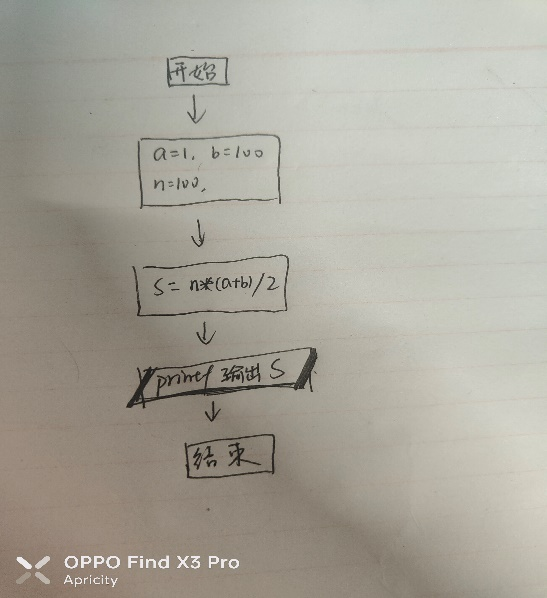 开始
a=1, b=100
n=100,
S= n*(a+b)/2
printf 输出 S
结束
OPPO Find X3 Pro
Apricity